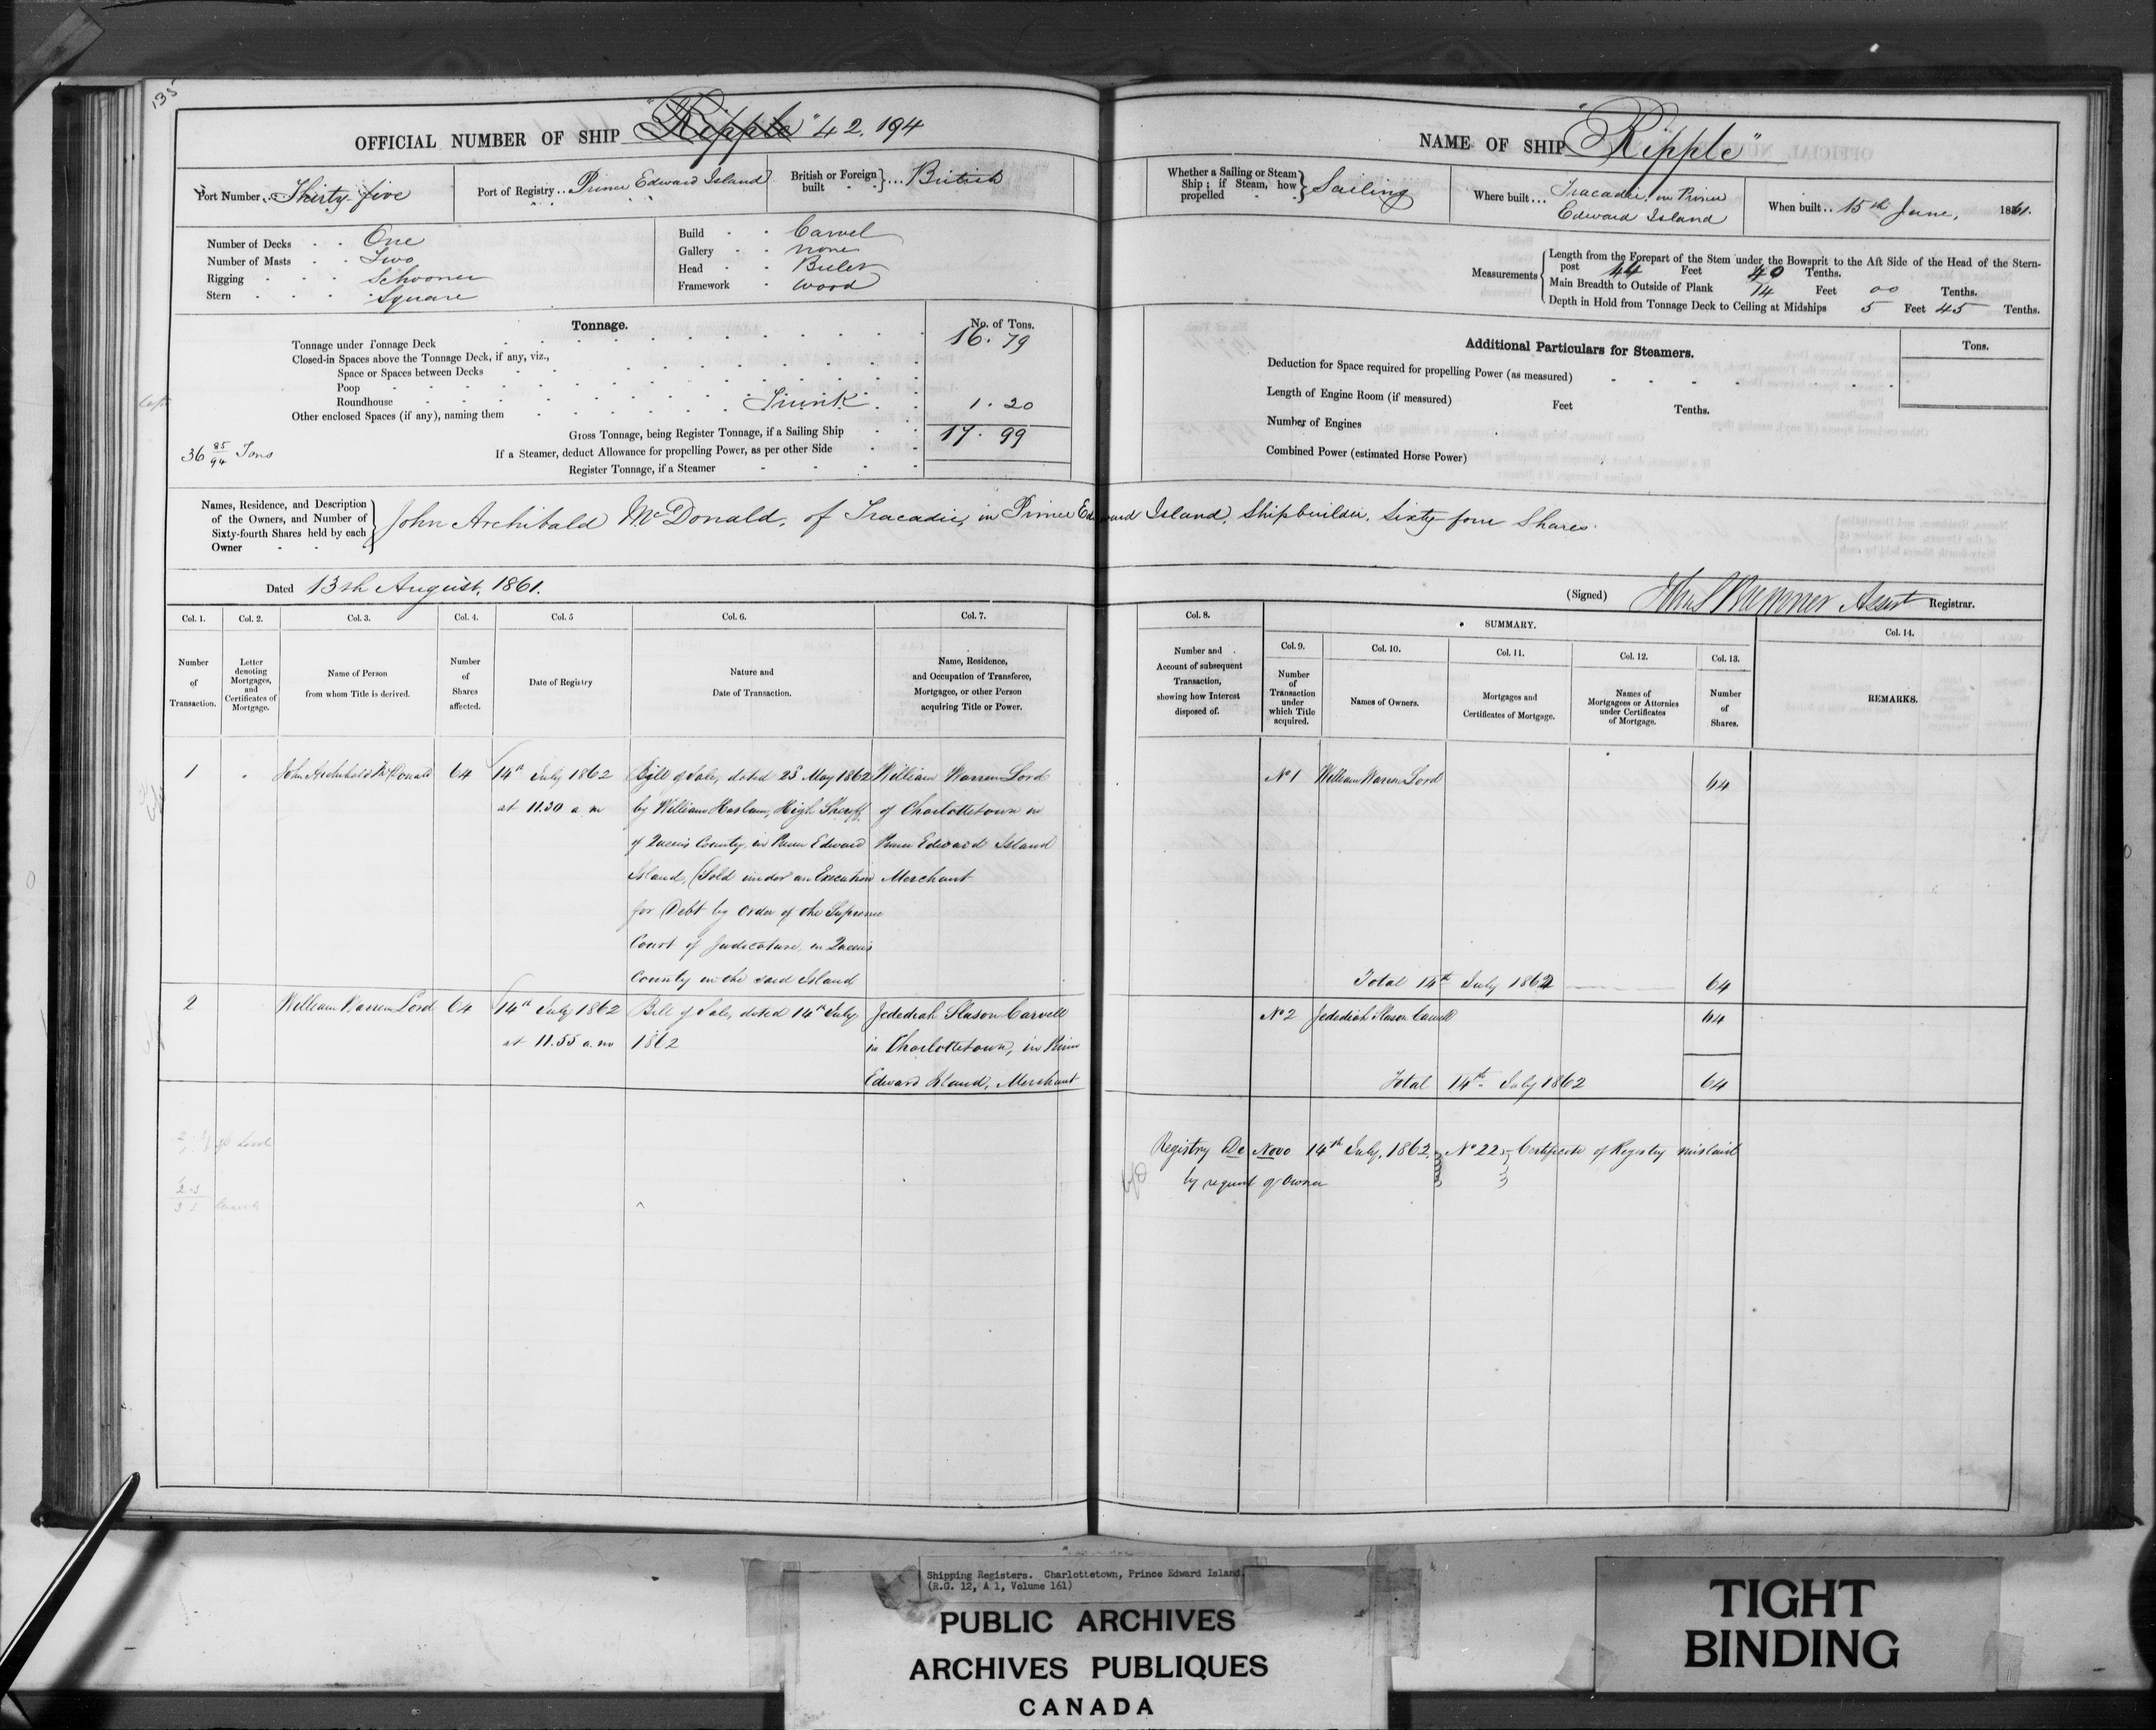 135
OFFICIAL NUMBER OF SHIP "Ripple" 42,194
Port Number .. Thirty-five
Port of Registry .. Prince Edward Island
British or Foreign built } ... British
Number of Decks . . One
Number of Masts . . Two
Rigging . . . Schooner
Stern . . . . Square
Build . . Carvel
Gallery . . none
Head . . Billet
Framework . wood
Tonnage.
No. of Tons.
Tonnage under Tonnage Deck 16.79
Closed-in Spaces above the Tonnage Deck, if any, viz.,
Space or Spaces between Decks
Poop
Roundhouse
Other enclosed Spaces (if any), naming them Trunk 1.20
Gross Tonnage, being Register Tonnage, if a Sailing Ship 17.99
If a Steamer, deduct Allowance for propelling Power, as per other Side
Register Tonnage, if a Steamer
36 85/94 Tons
NAME OF SHIP "Ripple"
Whether a Sailing or Steam Ship; if Steam, how propelled } Sailing
Where built ... Tracadie, in Prince
Edward Island
When built .. 15th June, 1861.
Measurements
Length from the Forepart of the Stem under the Bowsprit to the Aft Side of the Head of the Stern-
post 44 Feet 40 Tenths.
Main Breadth to Outside of Plank 14 Feet 00 Tenths.
Depth in Hold from Tonnage Deck to Ceiling at Midships 5 Feet 45 Tenths.
Additional Particulars for Steamers.
Tons.
Deduction for Space required for propelling Power (as measured)
Length of Engine Room (if measured) Feet Tenths.
Number of Engines
Combined Power (estimated Horse Power)
Names, Residence, and Description
of the Owners, and Number of
Sixty-fourth Shares held by each
Owner
John Archibald McDonald, of Tracadie, in Prince Edward Island, Shipbuilder, Sixty four Shares.
Dated 13th August, 1861.
(Signed) Assist Registrar.
Col. 1. Col. 2. Col. 3. Col. 4. Col. 5 Col. 6. Col. 7.
Number of Transaction.
Letter denoting Mortgages, and Certificates of Mortgage.
Name of Person from whom Title is derived.
Number of Shares affected.
Date of Registry
Nature and Date of Transaction.
Name, Residence, and Occupation of Transferee, Mortgagee, or other Person acquiring Title or Power.
Col. 8.
Number and Account of subsequent Transaction, showing how Interest disposed of.
SUMMARY.
Col. 9. Col. 10. Col. 11. Col. 12. Col. 13. Col. 14.
Number of Transaction under which Title acquired.
Names of Owners.
Mortgages and Certificates of Mortgage.
Names of Mortgagees or Attornies under Certificates of Mortgage.
Number of Shares.
REMARKS.
1
John Archibald McDonald
64
14th July 1862
at 11.30 a m
Bill of Sale, dated 28 May 1862
by William Haslam, High Sheriff
of Queens County, in Prince Edward
Island, (Sold under an Execution
for Debt by order of the Supreme
Court of Judicature, in Queens
County in the said Island
William Warren Lord
of Charlottetown in
Prince Edward Island
Merchant
No 1 William Warren Lord 64
Total 14th July 1862 64
2
William Warren Lord
64
14th July 1862
at 11.55 a. m
Bill of Sale, dated 14th July
1862
Jedediah Slason Carvell
in Charlottetown, in Prince
Edward Island, Merchant
No 2 Jedediah Slason Carvell 64
Total 14th July 1862 64
Registry De Novo 14th July, 1862. No 22 Certificate of Registry mislaid
by request of Owner
Shipping Registers. Charlottetown, Prince Edward Island.
(R.G. 12, A 1, Volume 161)
PUBLIC ARCHIVES
ARCHIVES PUBLIQUES
CANADA
TIGHT
BINDING